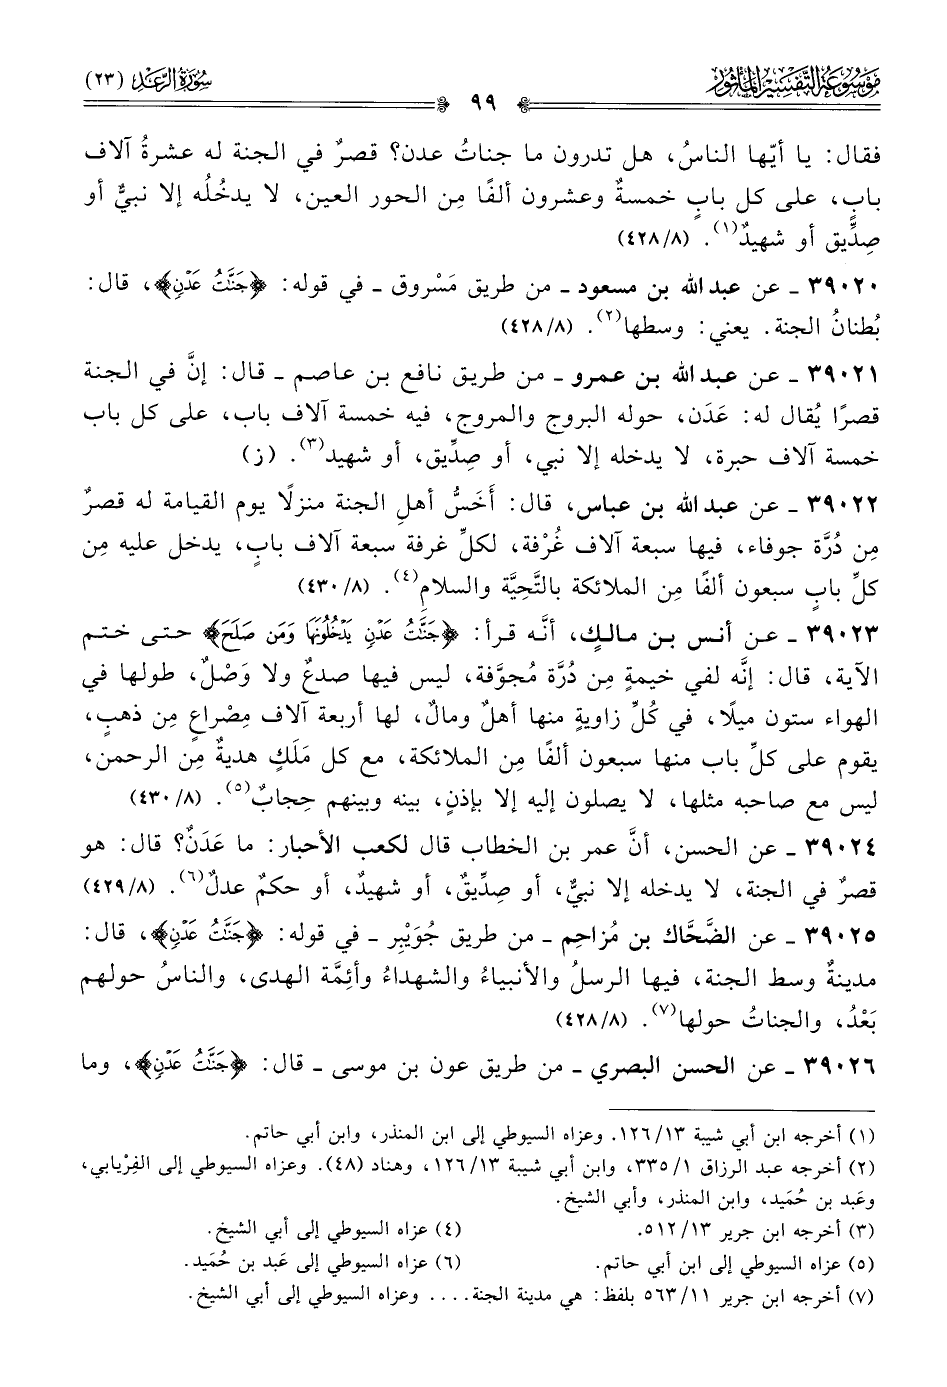 موسوعة التفسير المأثور
سورة الرعد (٢٣)
٩٩
فقال: يا أيّها الناسُ، هل تدرون ما جناتُ عدن؟ قصرٌ في الجنة له عشرةُ آلاف
باب، على كل بابٍ خمسةٌ وعشرون ألفًا مِن الحور العين، لا يدخُلُه إلا نبيٌّ أو
صِدِّيق أو شهيدٌ(١). (٤٢٨/٨)
٣٩٠٢٠ ـ عن عبد الله بن مسعود ـ من طريق مَسْروق ـ في قوله: ﴿جَنَّٰتُ عَدۡنٖ﴾، قال:
بُطنانُ الجنة. يعني: وسطها(٢). (٤٢٨/٨)
٣٩٠٢١ ـ عن عبد الله بن عمرو ـ من طريق نافع بن عاصم ـ قال: إنَّ في الجنة
قصرًا يُقال له: عَدَن، حوله البروج والمروج، فيه خمسة آلاف باب، على كل باب
خمسة آلاف حبرة، لا يدخله إلا نبي، أو صِدِّيق، أو شهيد(٣). (ز)
٣٩٠٢٢ ـ عن عبد الله بن عباس، قال: أَخَسُّ أهلِ الجنة منزلًا يوم القيامة له قصرٌ
مِن دُرَّة جوفاء، فيها سبعة آلاف غُرْفة، لكلِّ غرفة سبعة آلاف بابٍ، يدخل عليه مِن
كلِّ بابٍ سبعون ألفًا مِن الملائكة بالتَّحِيَّة والسلام(٤). (٤٣٠/٨)
٣٩٠٢٣ ـ عن أنس بن مالك، أنَّه قرأ: ﴿جَنَّٰتُ عَدۡنٖ يَدۡخُلُونَهَا وَمَن صَلَحَ﴾ حتى ختم
الآية، قال: إنَّه لفي خيمةٍ مِن دُرَّة مُجوَّفة، ليس فيها صدعٌ ولا وَصْلٌ، طولها في
الهواء ستون ميلًا، في كُلِّ زاويةٍ منها أهلٌ ومالٌ، لها أربعة آلاف مِصْراعٍ مِن ذهبٍ،
يقوم على كلِّ باب منها سبعون ألفًا مِن الملائكة، مع كل مَلَكٍ هديةٌ مِن الرحمن،
ليس مع صاحبه مثلها، لا يصلون إليه إلا بإذنٍ، بينه وبينهم حِجابٌ(٥). (٤٣٠/٨)
٣٩٠٢٤ ـ عن الحسن، أنَّ عمر بن الخطاب قال لكعب الأحبار: ما عَدَنٌ؟ قال: هو
قصرٌ في الجنة، لا يدخله إلا نبيٌّ، أو صِدِّيقٌ، أو شهيدٌ، أو حكمٌ عدلٌ(٦). (٤٢٩/٨)
٣٩٠٢٥ ـ عن الضَّحَّاك بن مُزاحِم ـ من طريق جُوَيْبِر ـ في قوله: ﴿جَنَّٰتُ عَدۡنٖ﴾، قال:
مدينةٌ وسط الجنة، فيها الرسلُ والأنبياءُ والشهداءُ وأئِمَّة الهدى، والناسُ حولهم
بَعْدُ، والجناتُ حولها(٧). (٤٢٨/٨)
٣٩٠٢٦ ـ عن الحسن البصري ـ من طريق عون بن موسى ـ قال: ﴿جَنَّٰتُ عَدۡنٖ﴾، وما
(١) أخرجه ابن أبي شيبة ١٢٦/١٣. وعزاه السيوطي إلى ابن المنذر، وابن أبي حاتم.
(٢) أخرجه عبد الرزاق ٣٣٥/١، وابن أبي شيبة ١٢٦/١٣، وهناد (٤٨). وعزاه السيوطي إلى الفِرْيابي،
وعَبد بن حُمَيد، وابن المنذر، وأبي الشيخ.
(٣) أخرجه ابن جرير ٥١٢/١٣. (٤) عزاه السيوطي إلى أبي الشيخ.
(٥) عزاه السيوطي إلى ابن أبي حاتم. (٦) عزاه السيوطي إلى عَبد بن حُمَيد.
(٧) أخرجه ابن جرير ٥٦٣/١١ بلفظ: هي مدينة الجنة.... وعزاه السيوطي إلى أبي الشيخ.